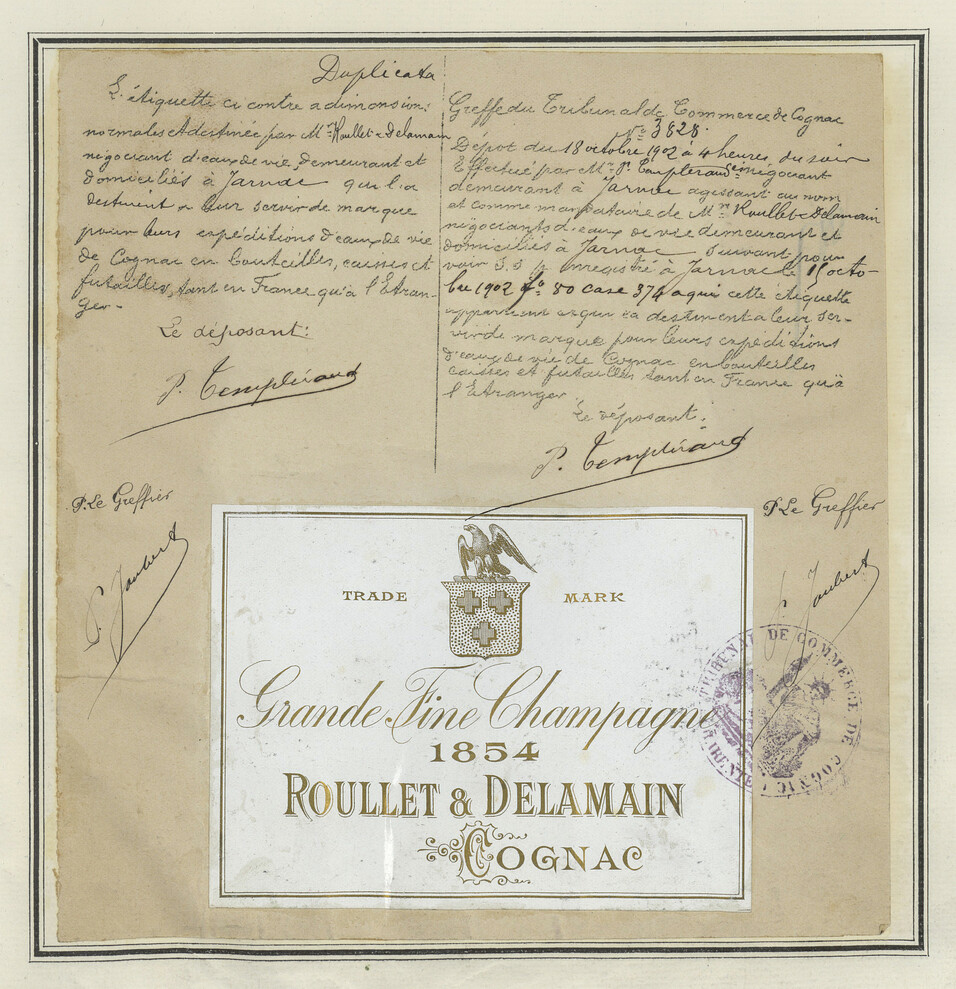 Duplicata
L'étiquette ci contre a dimensions
normales et destinée par Mrs Roullet & Delamain
négociant d'eaux de vie, demeurant et
domiciliés à Jarnac qui l'a
destinent a leur servir de marque
pour leurs expéditions d'eaux de vie
de Cognac en bouteilles, caisses et
futailles, tant en France qu'à l'Etran-
ger.
Le déposant:
P. Templéraud
Greffe du Tribunal de Commerce de Cognac
No 3828.
Dépot du 18 octobre 1902 à 4 heures du soir
Effectué par Mr P. Templeraud négociant
demeurant à Jarnac agissant au nom
et comme mandataire de Mrs Roullet & Delamain
négociants d'eaux de vie demeurant et
domiciliés à Jarnac suivant pou-
voir S.S.P. enregistré à Jarnac le 15 octo-
bre 1902 fo 80 case 374 a qui cette étiquette
appartient et qui la destinent a leur ser-
vir de marque pour leurs expéditions
d'eaux de vie de Cognac en bouteilles
caisses et futailles tant en France qu'à
l'Etranger
Le déposant:
P. Templéraud
P. Le Greffier
P. Joubert
P. Le Greffier
P. Joubert
TRADE MARK
Grande Fine Champagne
1854
ROULLET & DELAMAIN
COGNAC
TRIBUNAL DE COMMERCE DE COGNAC